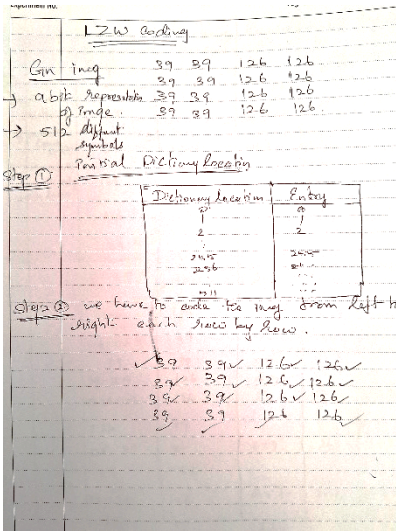 Experiment No.
LZW coding
Gn img 39 39 126 126
39 39 126 126
→ 9 bit representation 39 39 126 126
of Image. 39 39 126 126
→ 512 diffrent
symbols
Step ① Dictionary location
Dictionary location Entry
0 0
1 1
2 2
255 255
256
511
Step ② we have to code the img from left to
right each row by row.
39 39 126 126
39 39 126 126
39 39 126 126
39 39 126 126